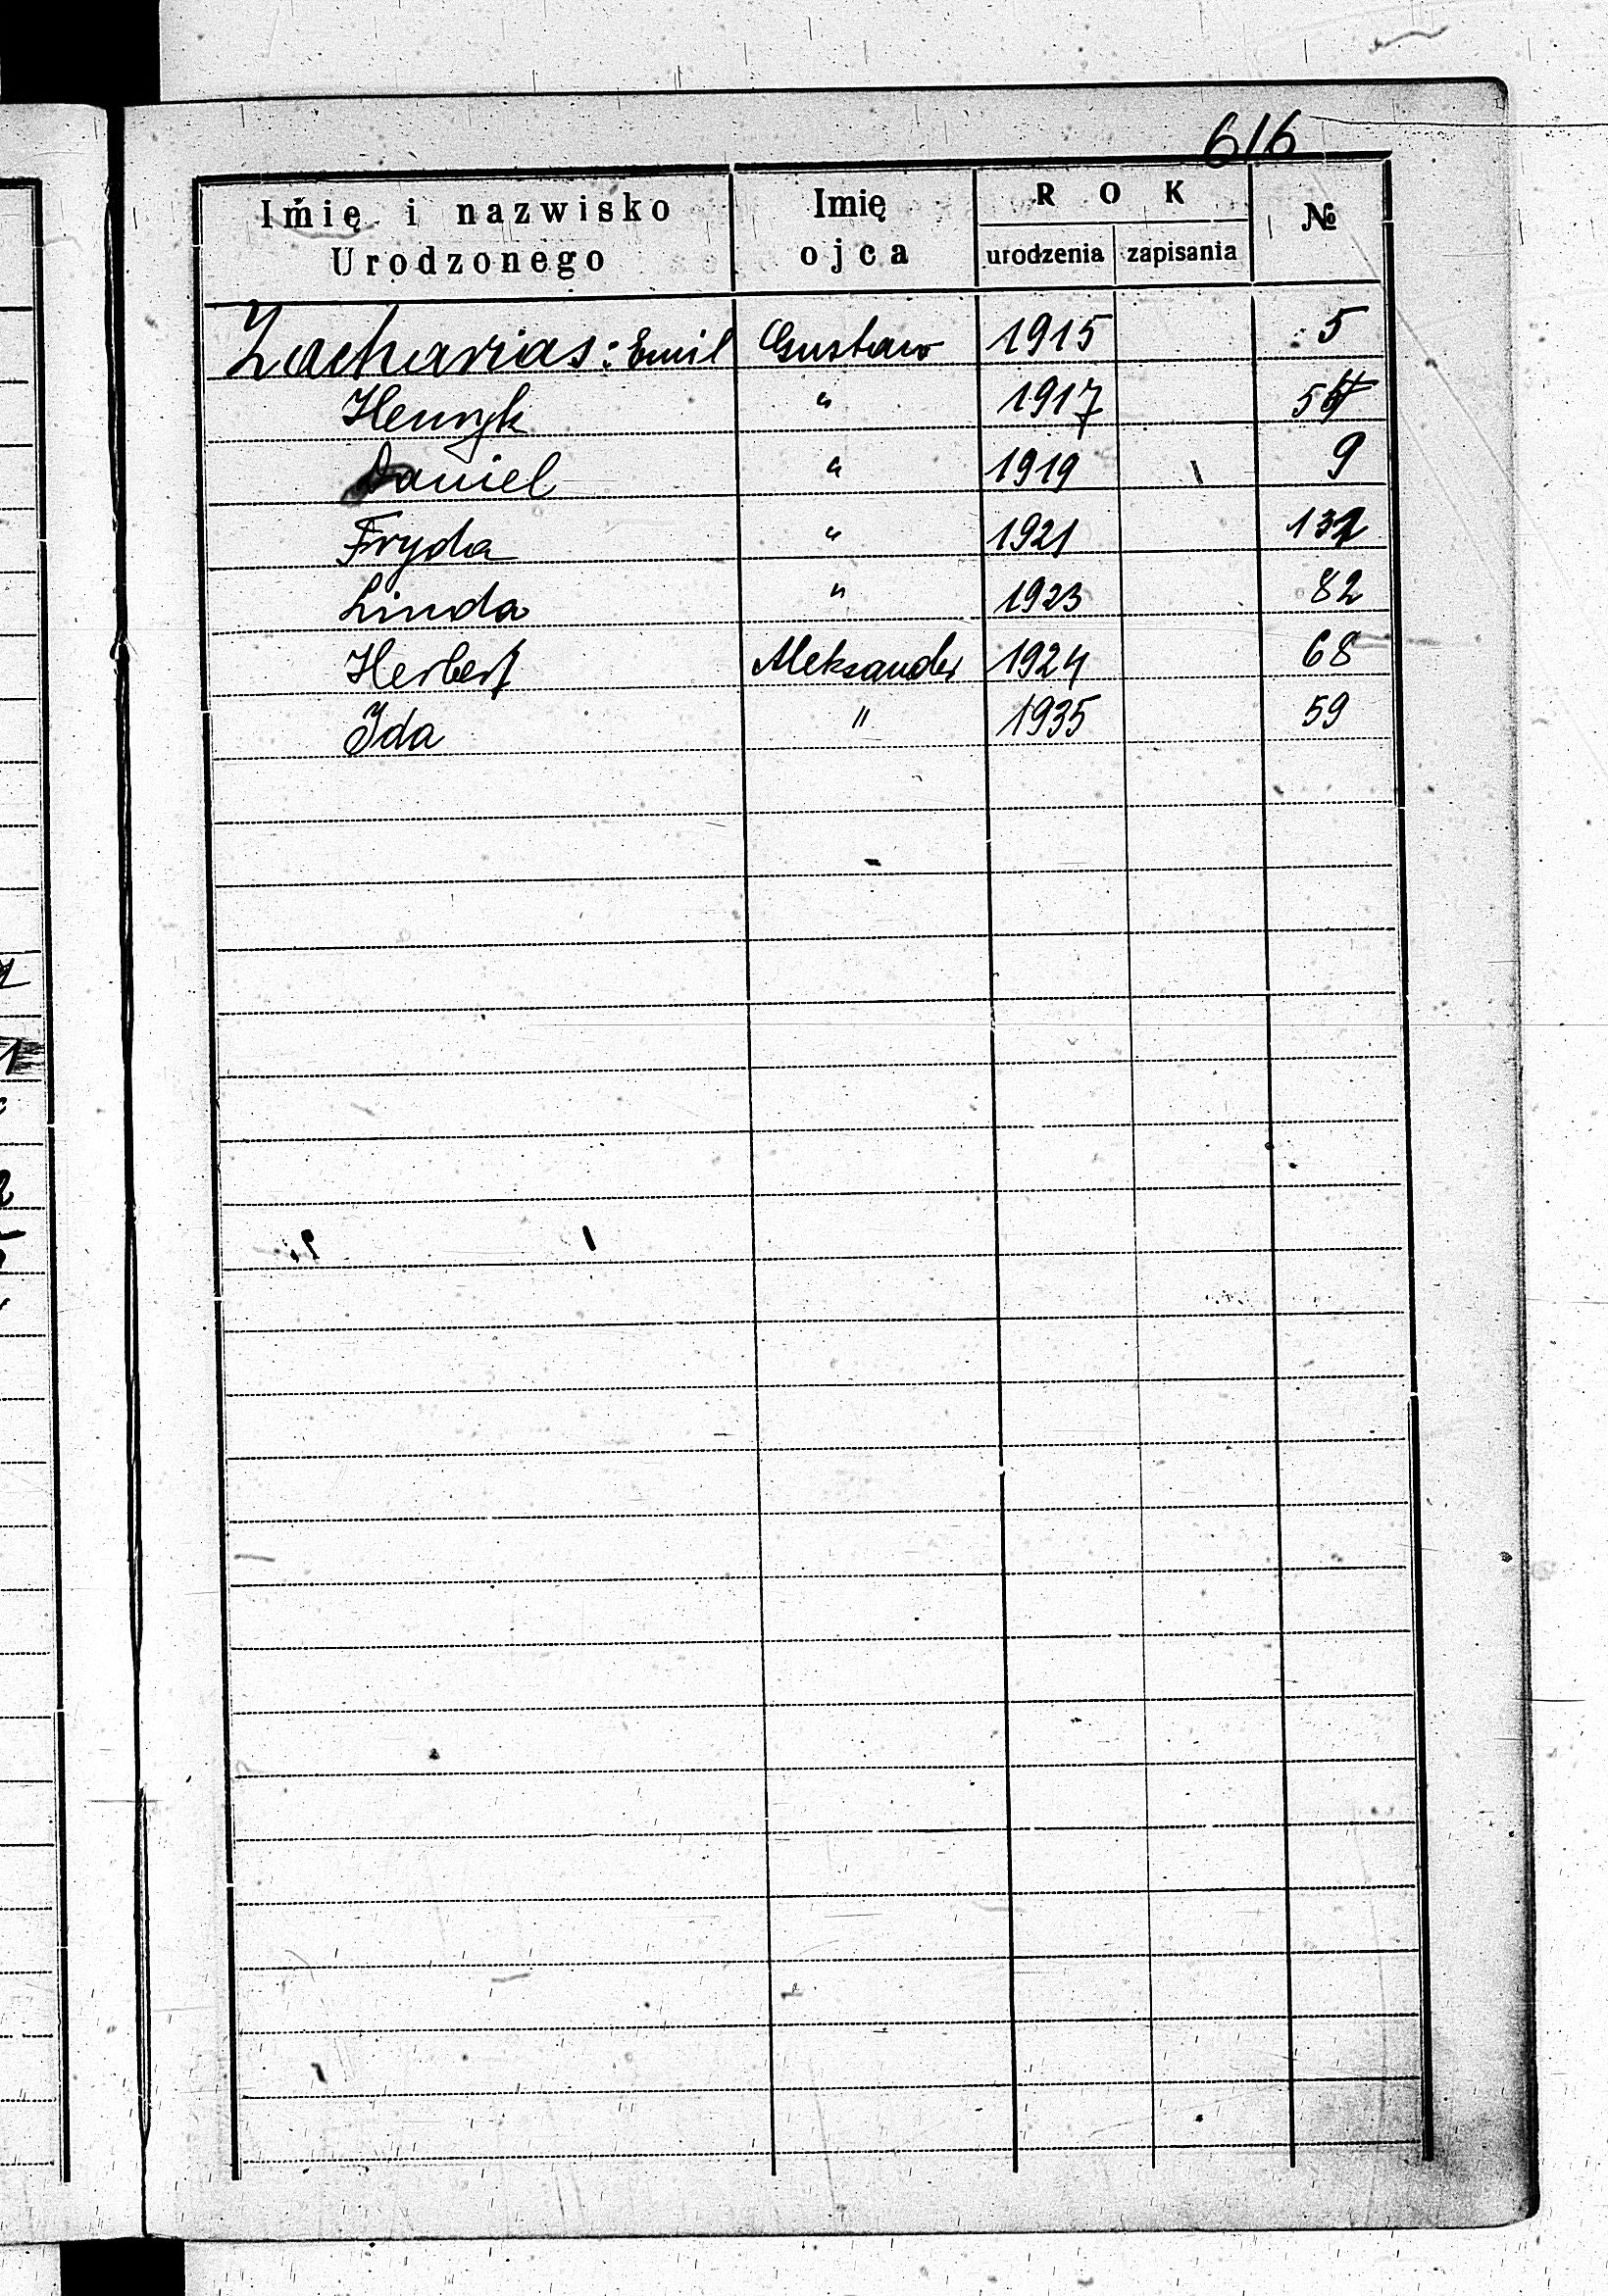 616
Imię i nazwisko Urodzonego Imię ojca ROK urodzenia zapisania №
Zacharias: Emil Gustaw 1915 5
Henryk " 1917
Daniel " 1919 9
Fryda " 1921
Linda " 1923 82
Herbert Aleksander 1924 68
Ida " 1935 59